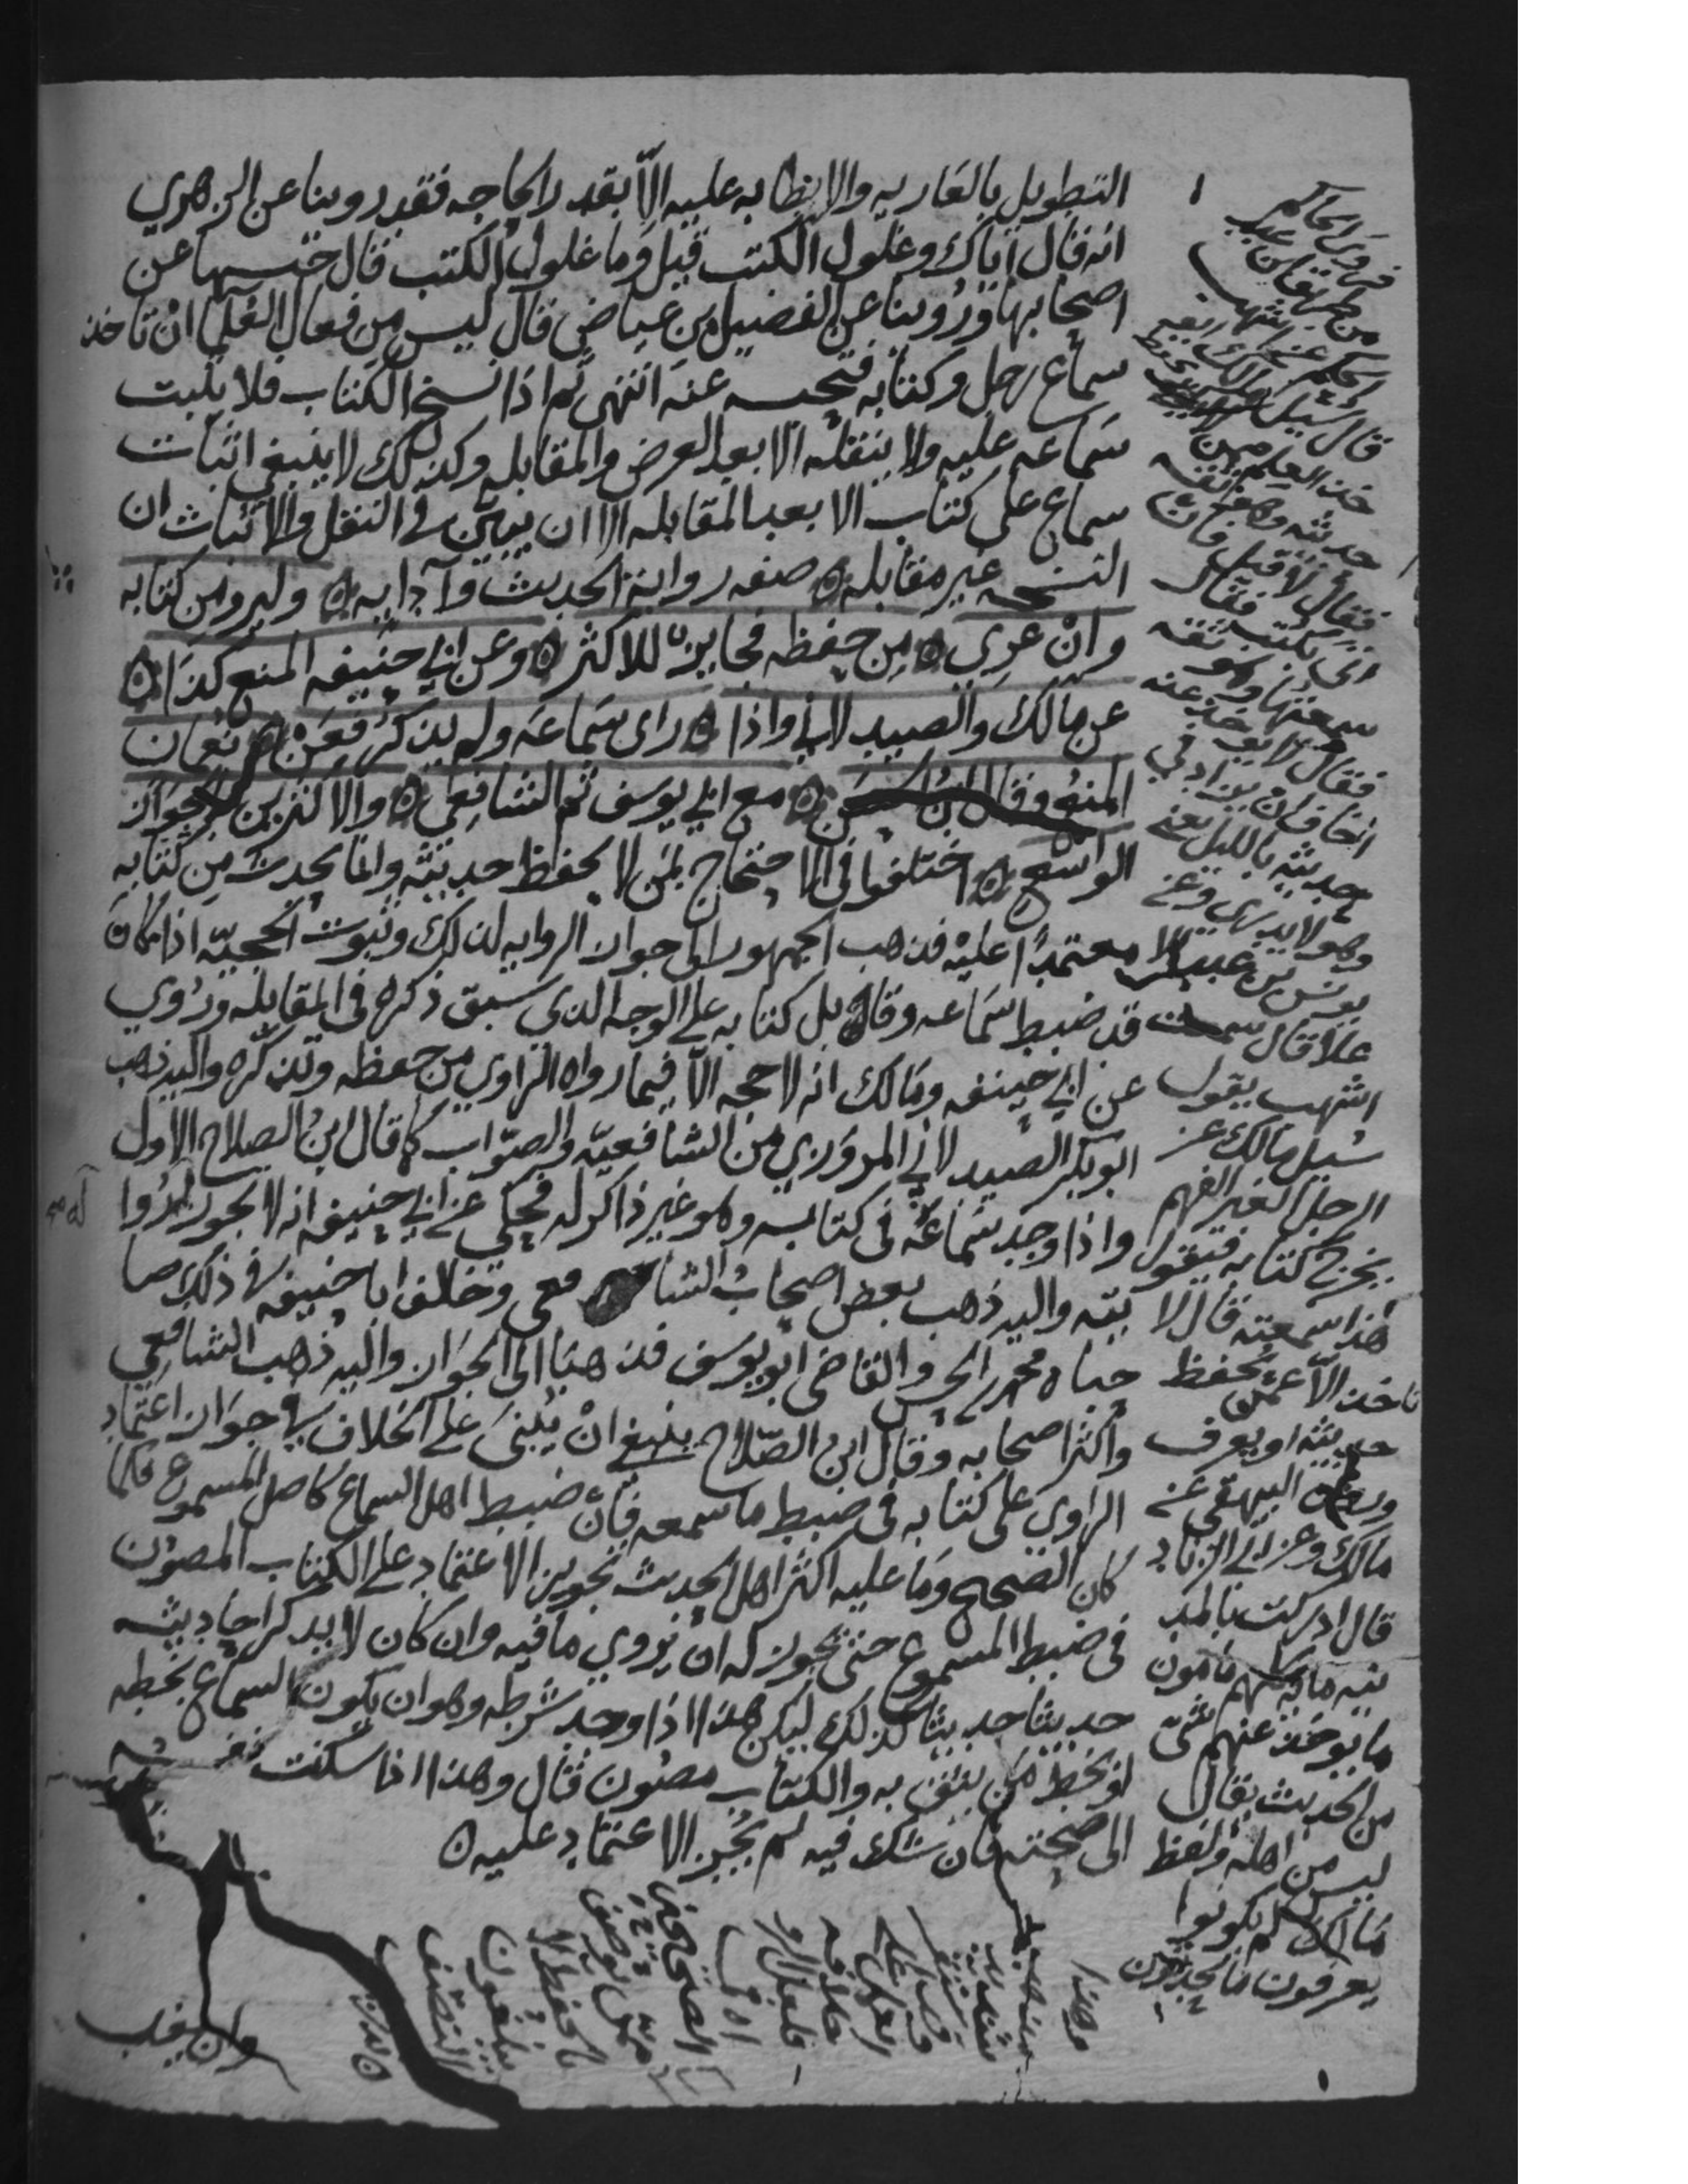 التطويل بالعاريه والابطا به عليه الا بقدر الحاجه فقد روينا عن الزهري
انه قال اياك وغلول الكتب قيل وما غلول الكتب قال حبسها عن
اصحابها وروينا عن الفضيل بن عياض قال ليس من فعال العلما ان تاخذ
سماع رجل وكتابه فتحبسه عنه انتهى ثم اذا نسخ الكتاب فلا يثبت
سماعه عليه ولا ينقله الا بعد العرض والمقابله وكذلك لا ينبغي اثبات
سماع على كتاب الا بعد المقابله الا ان يبين في النقل والاثبات ان
النسخه غير مقابله ه صفه رواية الحديث وآدابه ه وليرو من كتابه
وان عري ه من حفظه فجايز للاكثر ه وعن ابي حنيفه المنع كذا ه
عن مالك والصيدلاني واذا ه راى سماعه ولم يذكر فعن ه نعمان
المنع وقال ابن الحسن ه مع ابي يوسف ثم الشافعي ه والاكثرين بالجواز
الواسع ه اختلفوا في الاحتجاج بمن لا يحفظ حديثه وانما يحدث من كتابه
معتمدا عليه فذهب الجمهور الى جواز الروايه لذلك وثبوت الحجيه اذا كان
قد ضبط سماعه وقابل كتابه على الوجه الذي سبق ذكره في المقابله وروي
عن ابي حنيفه ومالك انه لا حجه الا فيما رواه الراوي من حفظه وتذكره واليه ذهب
ابوبكر الصيدلاني المروزي من الشافعيه والصواب كما قال ابن الصلاح الاول
واذا وجد سماعه في كتابه وهو غير ذاكر له فحكي عن ابي حنيفه انه لا يجوز له روا
يته واليه ذهب بعض اصحاب الشا فعي وخالف ابا حنيفه في ذلك صا
حباه محمد بن الحسن والقاضي ابو يوسف فذهبا الى الجواز واليه ذهب الشافعي
واكثر اصحابه وقال ابن الصلاح ينبغي ان يبنى على الخلاف في جواز اعتماد
الراوي على كتابه في ضبط ما سمعه فان ضبط اصل السماع كاصل المسموع فكما
كان الصحيح وما عليه اكثر اهل الحديث تجويز الاعتماد على الكتاب المصون
في ضبط المسموع حتى يجوز له ان يروي ما فيه وان كان لا يذكر احاديثه
حديثا حديثا كذلك ليكن هذا اذا وجد شرطه وهو ان يكون السماع بخطه
او بخط من يثق به والكتاب مصون قال وهذا اذا سكنت نفسه
الى صحته فان شك فيه لم يجز الاعتماد عليه ه
فروى الحاكم
من طريق ابن عبد
الحكم عن اشهب
قال سئل مالك ايو
خذ العلم ممن
حدثه وهو ثقه
فقال لا قيل فان
اتى بكتب فقال
سمعتها وهو ثقه
فقال لا يوخذ عنه
اخاف ان يزاد في
حديثه بالليل يعني
وهو لا يدري وعن
يونس بن عبد الا
علا قال سمعت
اشهب يقول
سئل مالك عن
الرجل الغير الفهم
يخرج كتابه فيقول
هذا سمعته قال لا
تاخذ الا عمن يحفظ
حديثه او يعرف
وروى البيهقي عن
مالك وعن ابي الزناد
قال ادركت بالمد
ينه مائه كلهم مامون
ما يوخذ عنهم شي
من الحديث يقال
ليس من اهله ولفظ
مالك لم يكونوا
يعرفون ما يحدثون
وان يغب